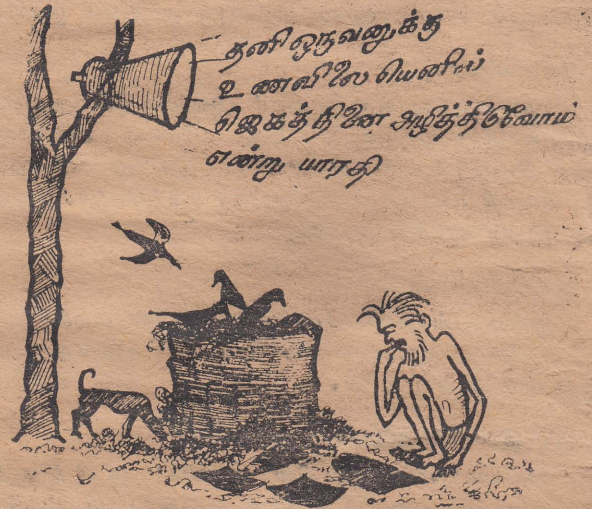 தனி ஒருவனுக்கு
உணவிலை யெனில்
ஜெகத்தினை அழித்திடுவோம்
என்று பாரதி